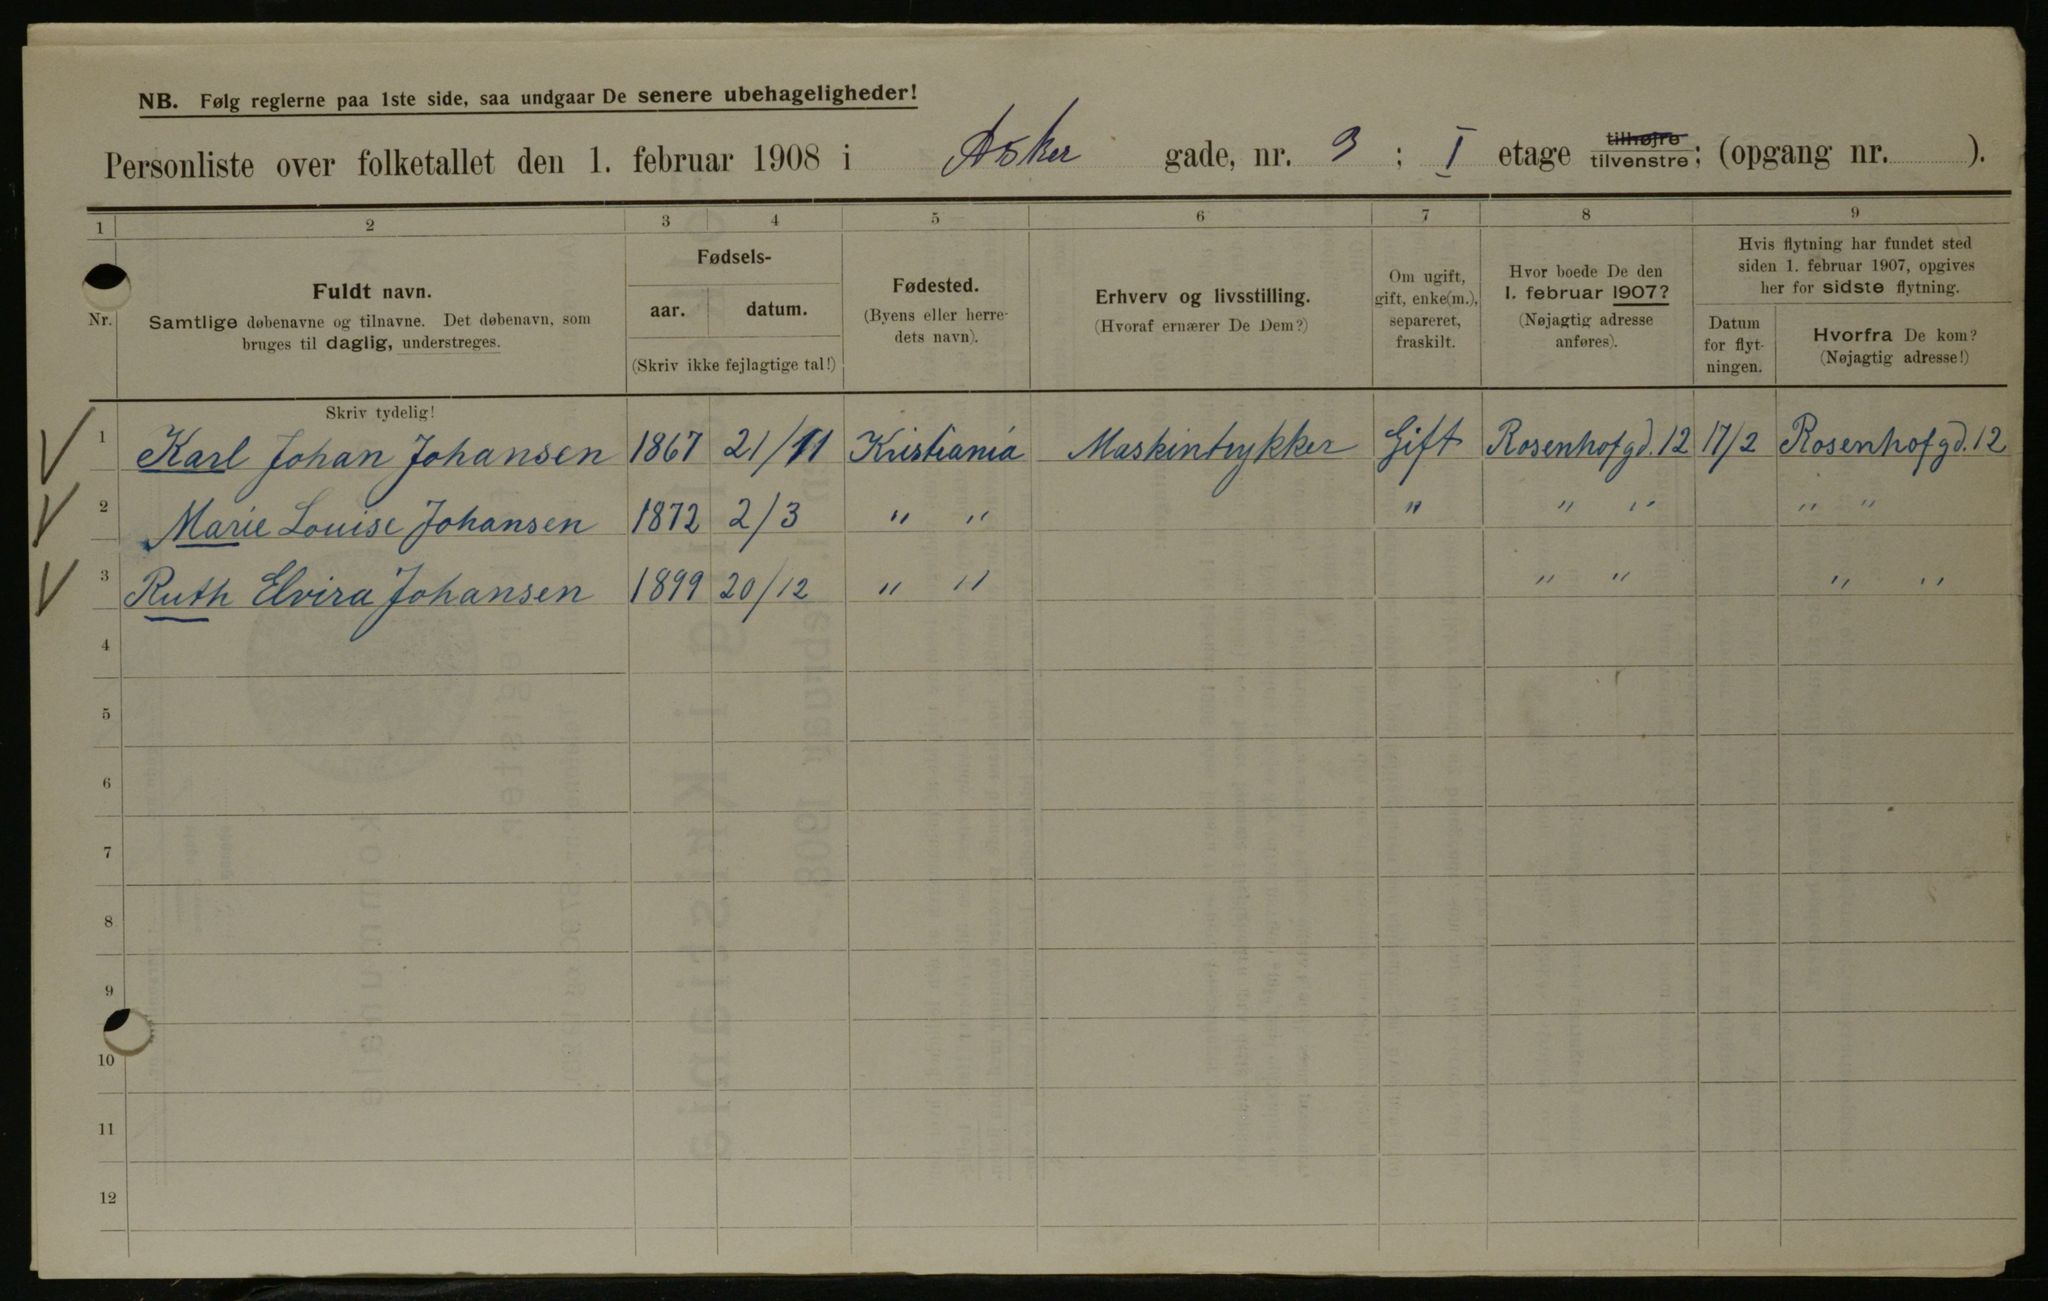 NB. Følg reglerne paa 1ste side, saa undgaar De senere ubehageligheder!
Personliste over folketallet den 1. februar 1908 i Asker gade, nr. 3 ; I etage tilhøjre tilvenstre; (opgang nr. ).
1 2 3 4 5 6 7 8 9
Nr.
Fuldt navn.
Samtlige døbenavne og tilnavne. Det døbenavn, som
bruges til daglig, understreges.
Fødsels-
aar. datum.
(Skriv ikke fejlagtige tal!)
Fødested.
(Byens eller herre-
dets navn).
Erhverv og livsstilling.
(Hvoraf ernærer De Dem?)
Om ugift,
gift, enke(m.),
separeret,
fraskilt.
Hvor boede De den
1. februar 1907?
(Nøjagtig adresse
anføres).
Hvis flytning har fundet sted
siden 1. februar 1907, opgives
her for sidste flytning.
Datum
for flyt-
ningen.
Hvorfra De kom?
(Nøjagtig adresse!)
Skriv tydelig!
1 Karl Johan Johansen 1867 21/11 Kristiania Maskintrykker Gift Rosenhofgd. 12 17/2 Rosenhofgd. 12
2 Marie Louise Johansen 1872 2/3 " " " " " " "
3 Ruth Elvira Johansen 1899 20/12 " " " " " "
4
5
6
7
8
9
10
11
12